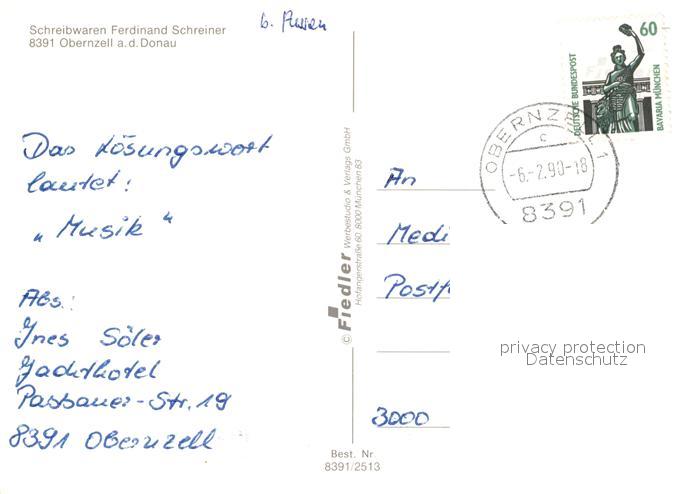 Schreibwaren Ferdinand Schreiner
8391 Obernzell a.d. Donau
Das Lösungswort
lautet:
„Musik"
Abs.:
Ines Söler
Jachthotel
Passauer-Str. 19
8391 Obernzell
© Fiedler Werbestudio & Verlags GmbH
Hofangerstraße 60 8000 München 83
Best. Nr.
8391/2513
60
DEUTSCHE BUNDESPOST
BAYARIA MÜNCHEN
OBERNZELL 1
c
-6.-2.90-18
8391
An
Medi
Postf
3000
privacy protection
Datenschutz